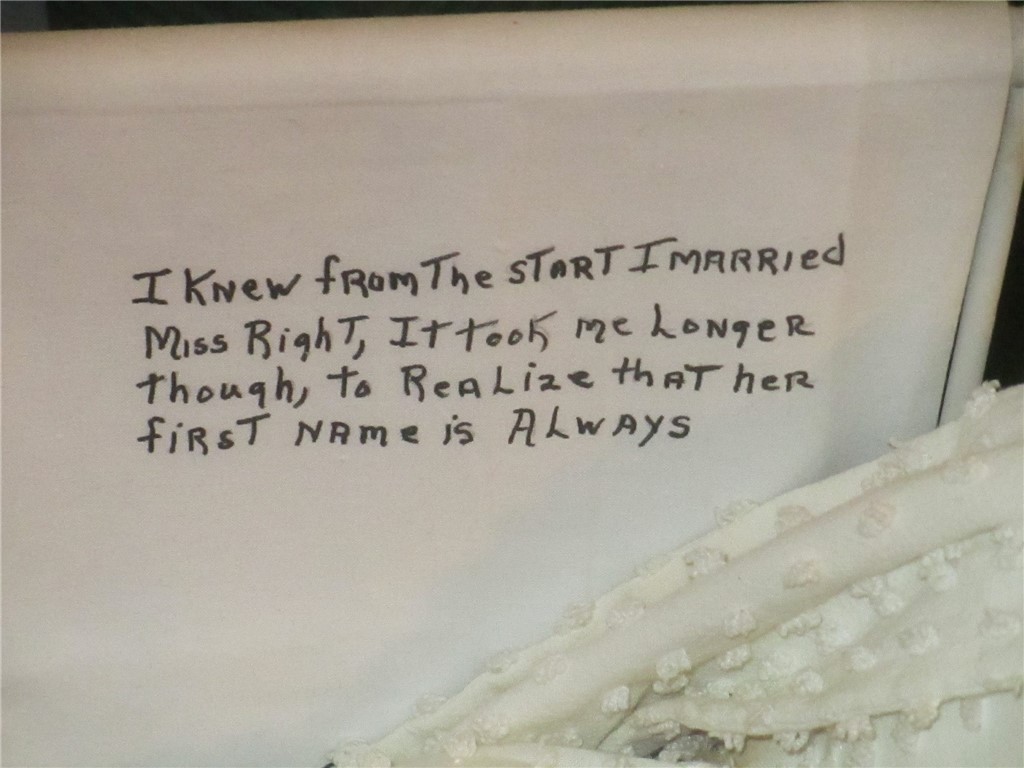 I KNew fROm The STaRT I MARRied
Miss Right, It took me LoNgeR
though, to ReALize thAT heR
fiRsT NAMe is ALWAYS